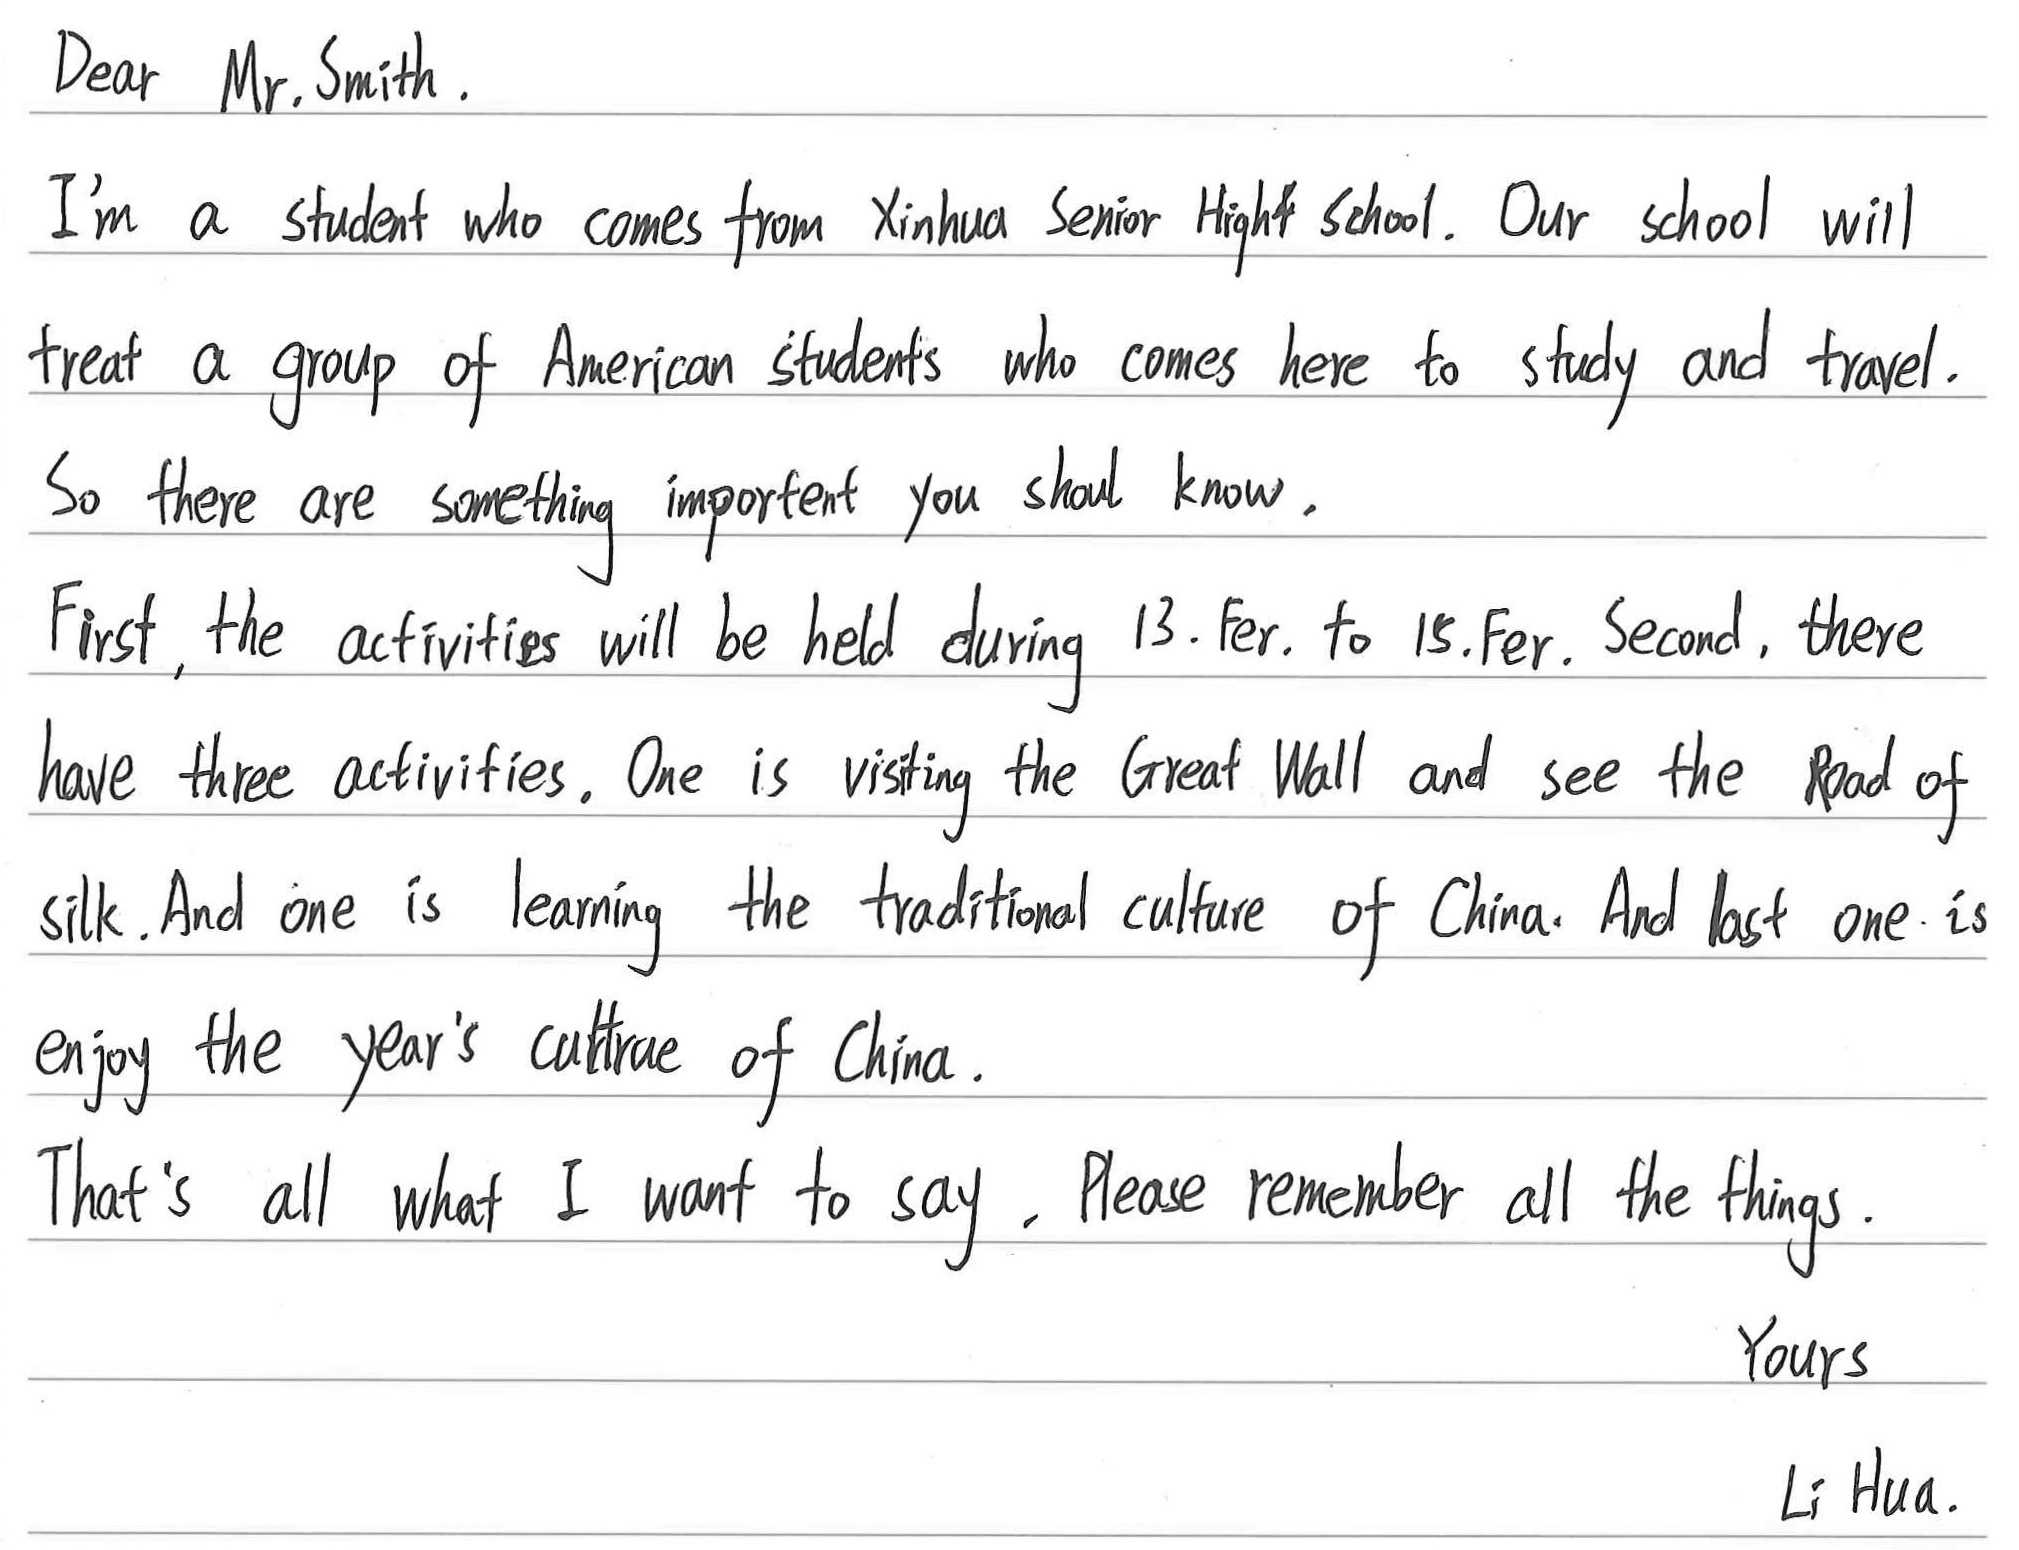 Dear Mr. Smith.
I'm a student who comes from Xinhua Senior Hight School. Our school will
treat a group of American students who comes here to study and travel.
So there are something importent you shoul know.
First, the activities will be held during 13. Fer. to 15. Fer. Second, there
have three activities. One is visiting the Great Wall and see the Road of
silk. And one is learning the traditional culture of China. And last one is
enjoy the year's cultrue of China.
That's all what I want to say. Please remember all the things.
Yours
Li Hua.